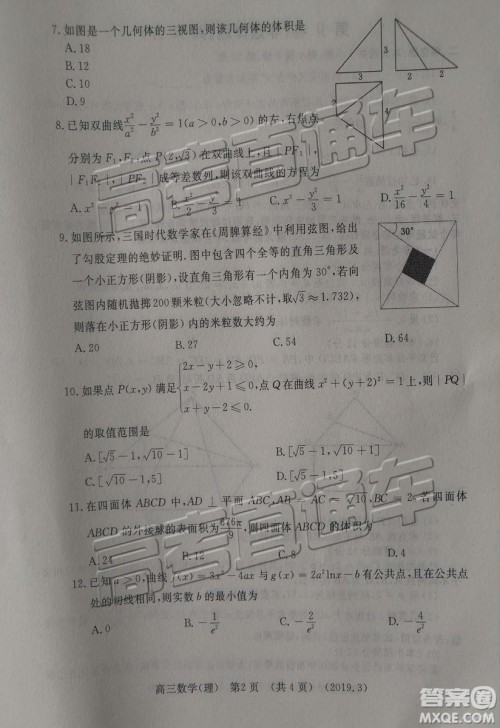 7. 如图是一个几何体的三视图,则该几何体的体积是
A. 18
B. 12
C. 10
D. 9
3
3
2
2
2
8. 已知双曲线x²/a²-y²/b²=1(a>0,b>0)的左、右焦点
分别为F₁,F₂,点P(2,√3)在双曲线上,且|PF₁|,
|F₁F₂|,|PF₂|成等差数列,则该双曲线的方程为
A. x²-y²=1 B. x²/2-y²/3=1 C. x²-y²/3=1 D. x²/16-y²/4=1
9. 如图所示,三国时代数学家在《周脾算经》中利用弦图,给
出了勾股定理的绝妙证明. 图中包含四个全等的直角三角形及
一个小正方形(阴影),设直角三角形有一个内角为30°,若向
弦图内随机抛掷200颗米粒(大小忽略不计,取√3≈1.732),
则落在小正方形(阴影)内的米粒数大约为
30°
A. 20 B. 27 C. 54 D. 64
10. 如果点P(x,y)满足{2x-y+2≥0, x-2y+1≤0, x+y-2≤0. 点Q在曲线x²+(y+2)²=1上,则|PQ|
的取值范围是
A. [√5-1,√10-1] B. [√5-1,√10+1]
C. [√10-1,5] D. [√5-1,5]
11. 在四面体ABCD中,AD⊥平面ABC,AB=AC= √10,BC=2,若四面体
ABCD的外接球的表面积为 ,则四面体ABCD的体积为
A. 24 B. 12 C. 8 D. 4
12. 已知a≥0,曲线f(x)=3x²-4ax与g(x)=2a²lnx-b有公共点,且在公共点
处的切线相同,则实数b的最小值为
A. 0 B. -1/e² C. -2/e² D. -4/e²
高三数学(理) 第2页 (共4页) (2019.3)
高考直通车
高考直通车
高考直通车
作业帮
www.zuoyebang.com